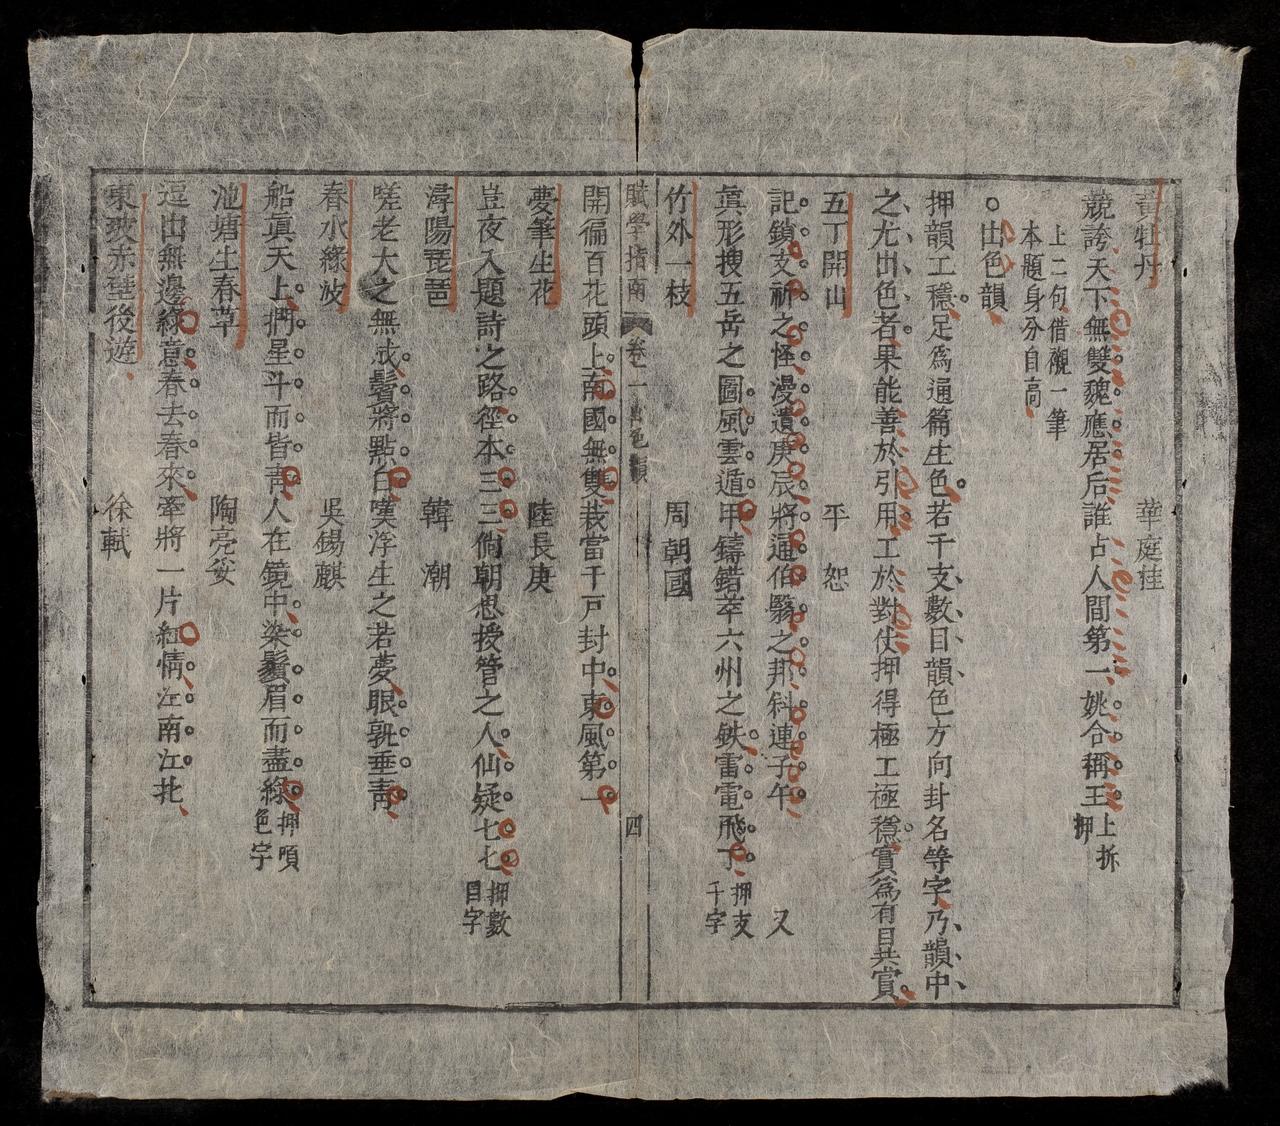 黃牡丹 華庭桂
競誇天下無雙魏應居后誰占人間第一姚合稱王上拆押
上二句借襯一筆
本題身分自高
○出色韻
押韻工穩足爲通篇生色若干支數目韻色方向封名等字乃韻中
之尤出色者果能善於引用工於對仗押得極工極穩實爲有目共賞
五丁開山 平恕
記鎖支祈之怪漫遺庚辰將通伯翳之邦斜連子午 又
眞形搜五岳之圖風雲遁甲鑄錯萃六州之鉄雷電飛丁押支干字
竹外一枝 周朝國
賦學指南 卷一 出色韻 四
開徧百花頭上南國無雙栽當千戸封中東風第一
夢筆生花 陸長庚
豈夜入題詩之路徑本三三倘朝想授管之人仙疑七七押數目字
潯陽琵琶 韓潮
嗟老大之無成鬢將點白嘆浮生之若夢眼孰垂靑
春水綠波 吳錫麒
船眞天上捫星斗而皆靑人在鏡中染鬚眉而盡綠押順色字
池塘生春草 陶亮
逗出無邊綠意春去春來牽將一片紅情江南江北
東坡赤壁後遊 徐軾